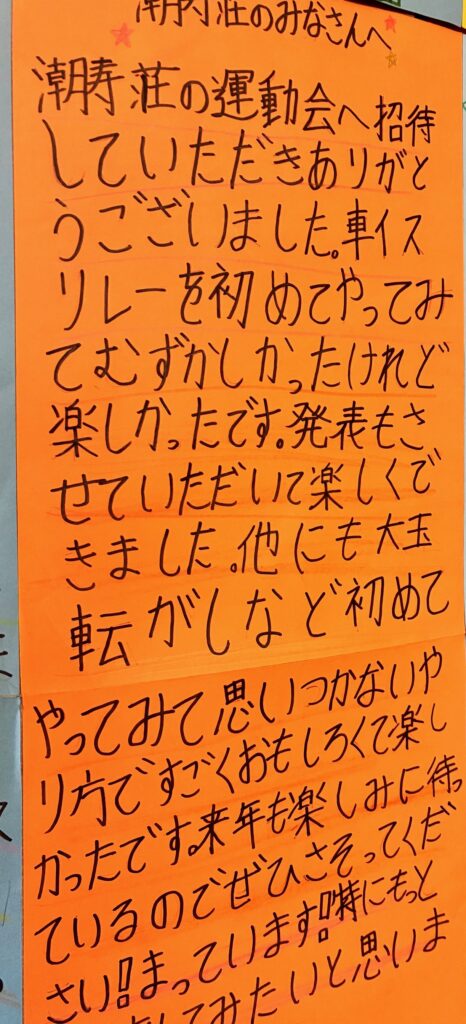 潮寿荘のみなさんへ
潮寿荘の運動会へ招待
していただきありがと
うございました。車イス
リレーを初めてやってみ
てむずかしかったけれど
楽しかったです。発表もさ
せていただいて楽しくで
きました。他にも大玉
転がしなど初めて
やってみて思いつかないや
り方ですごくおもしろくて楽し
かったです。来年も楽しみに待っ
ているのでぜひさそってくだ
さい!まっています!特にもっと
してみたいと思いま